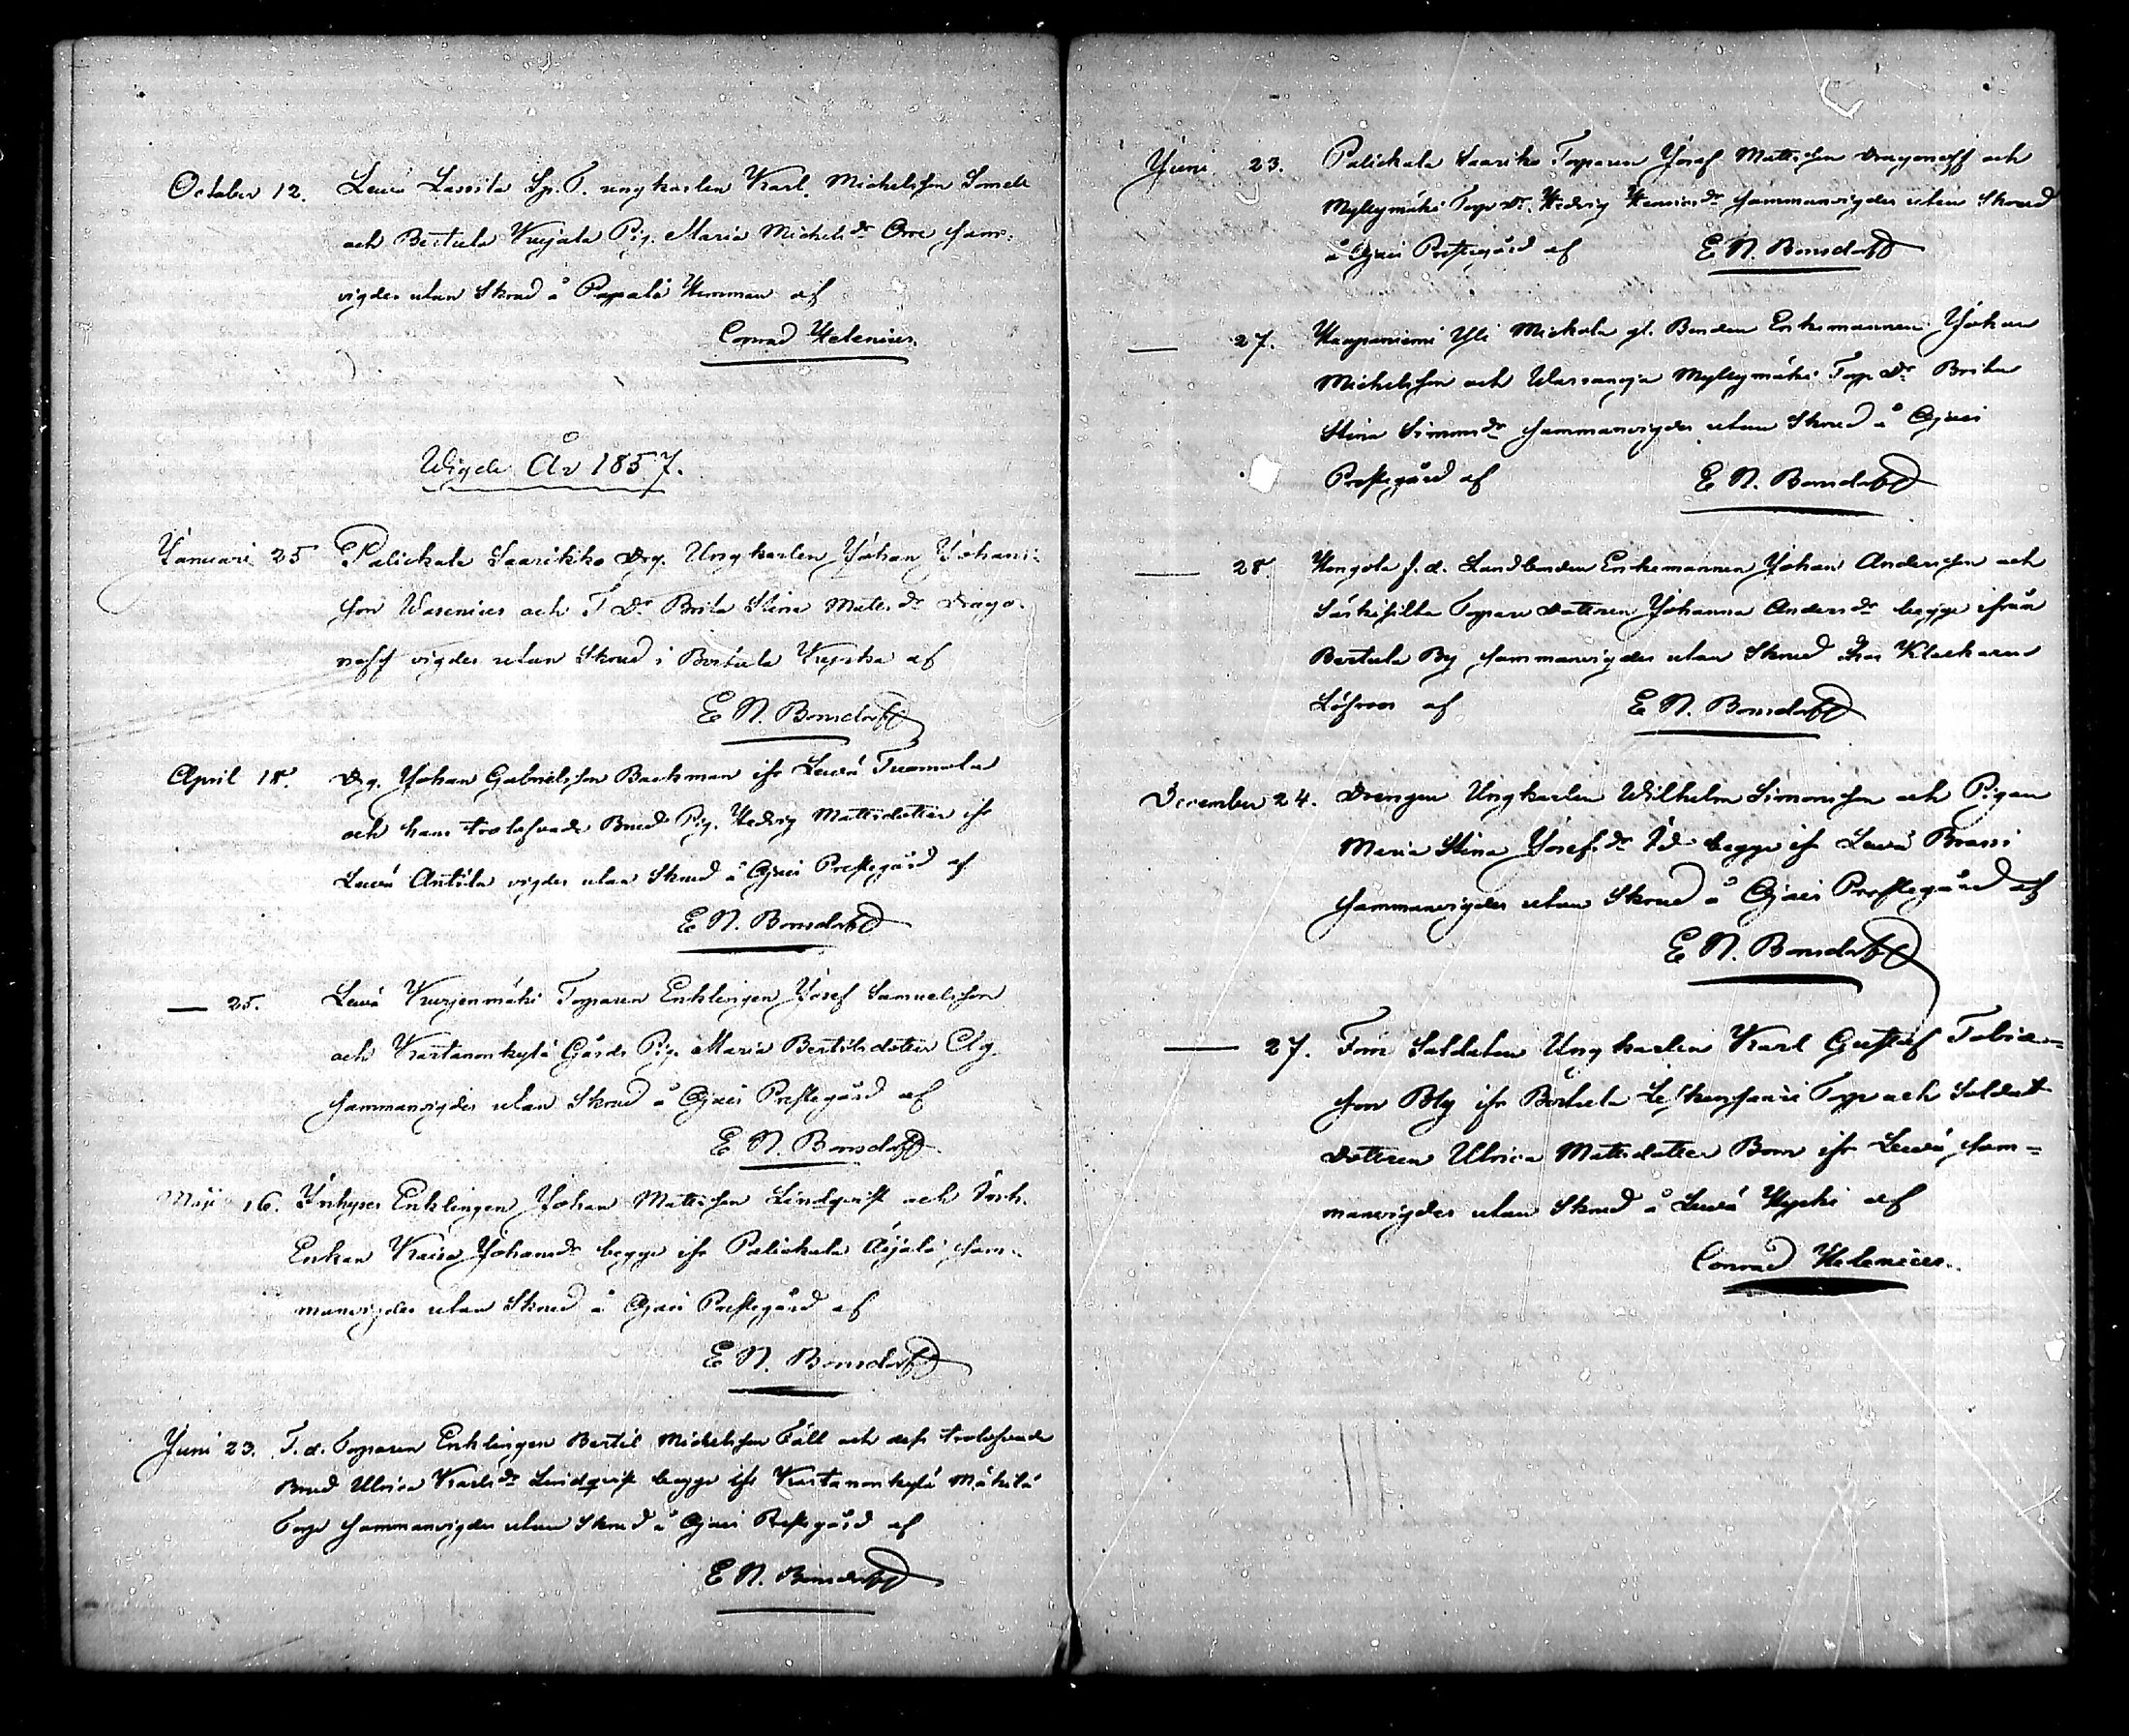 October 12. Lewä Lassila Sp. T. ungkarlen Karl Michelsson Somell
och Bertula Kujala Pig. Maria Michels dr Orre sam-
vigdes utan Skrud å Papalä Hemman af
Conrad Helenius.
Wigde År 1857.
Januari 25 Palickala Saarikko Drg. Ungkarlen Johan Johans-
son Wasenius och T. Dr Brita Stina Matts dr Drago-
noff vigdes utan Skrud i Bertula Kyrka af
E N. Bonsdorff
April 18. Drg. Johan Gabrielsson Backman ifr Lewä Tuomola
och hans trolofvade Brud Pig. Hedvig Mattsdotter ifr
Lewä Anttila vigdes utan Skrud å Ojais Prestegård af
E N. Bonsdorff
— 25. Lewä Kurjenmäki Torparen Enklingen Josef Samuelsson
och Kartanonkylä Gårds Pig. Maria Bertilsdotter Elg
sammanvigdes utan Skrud å Ojais Prestegård af
E N. Bonsdorff
Maji 16. Inhyses Enklingen Johan Mattsson Lindqvist och Inh.
Enkan Kaisa Johansdr begge ifr Palickala Äijälä sam-
manvigdes utan Skrud å Ojais Prestegård af
E N. Bonsdorff
Juni 23. F. d. Torparen Enklingen Bertil Michelsson Fäll och dess trolofvade
Brud Ulrica Karlsdr Lindqvist begge ifr Kartanonkylä Mäkilä
Torp sammanvigdes utan Skrud å Ojais Prestegård af
E N. Bonsdorff
Juni 23. Palickala Saariko Torparen Josef Mattsson Dragonoff och
Myllymäki Torp Dr. Hedvig Henrics dr sammanvigdes utan Skrud
å Ojais Prestegård af E N. Bonsdorff
— 27. Haapaniemi Yli Mickola gl. Bonden Enkemannen Johan
Michelsson och Warsanoja Myllymäki Torp Dr Brita
Stina Simonsdr sammanvigdes utan Skrud å Ojais
Prestegård af E N. Bonsdorff
— 28. Hongola f. d. Landbonden Enkemannen Johan Andersson och
Särkisilta Torpare Dottren Johanna Anders dr begge ifrån
Bertula By sammanvigdes utan Skrud hos Klockaren
Löfroos af E N. Bonsdorff
December 24. Drengen Ungkarlen Wilhelm Simonsson och Pigan
Maria Stina Josefs dr begge ifr Lewä Brassi
sammanvigdes utan Skrud å Ojais Prestegård af
E N. Bonsdorff
— 27. Finn Soldaten Ungkarlen Karl Gustaf Tobias-
son Bly ifr Bertula Torp och Soldat
Dottren Ulrica Mattsdotter Bom ifr Lewä sam-
manvigdes utan Skrud å Lewä Hyrki af
Conrad Helenius.